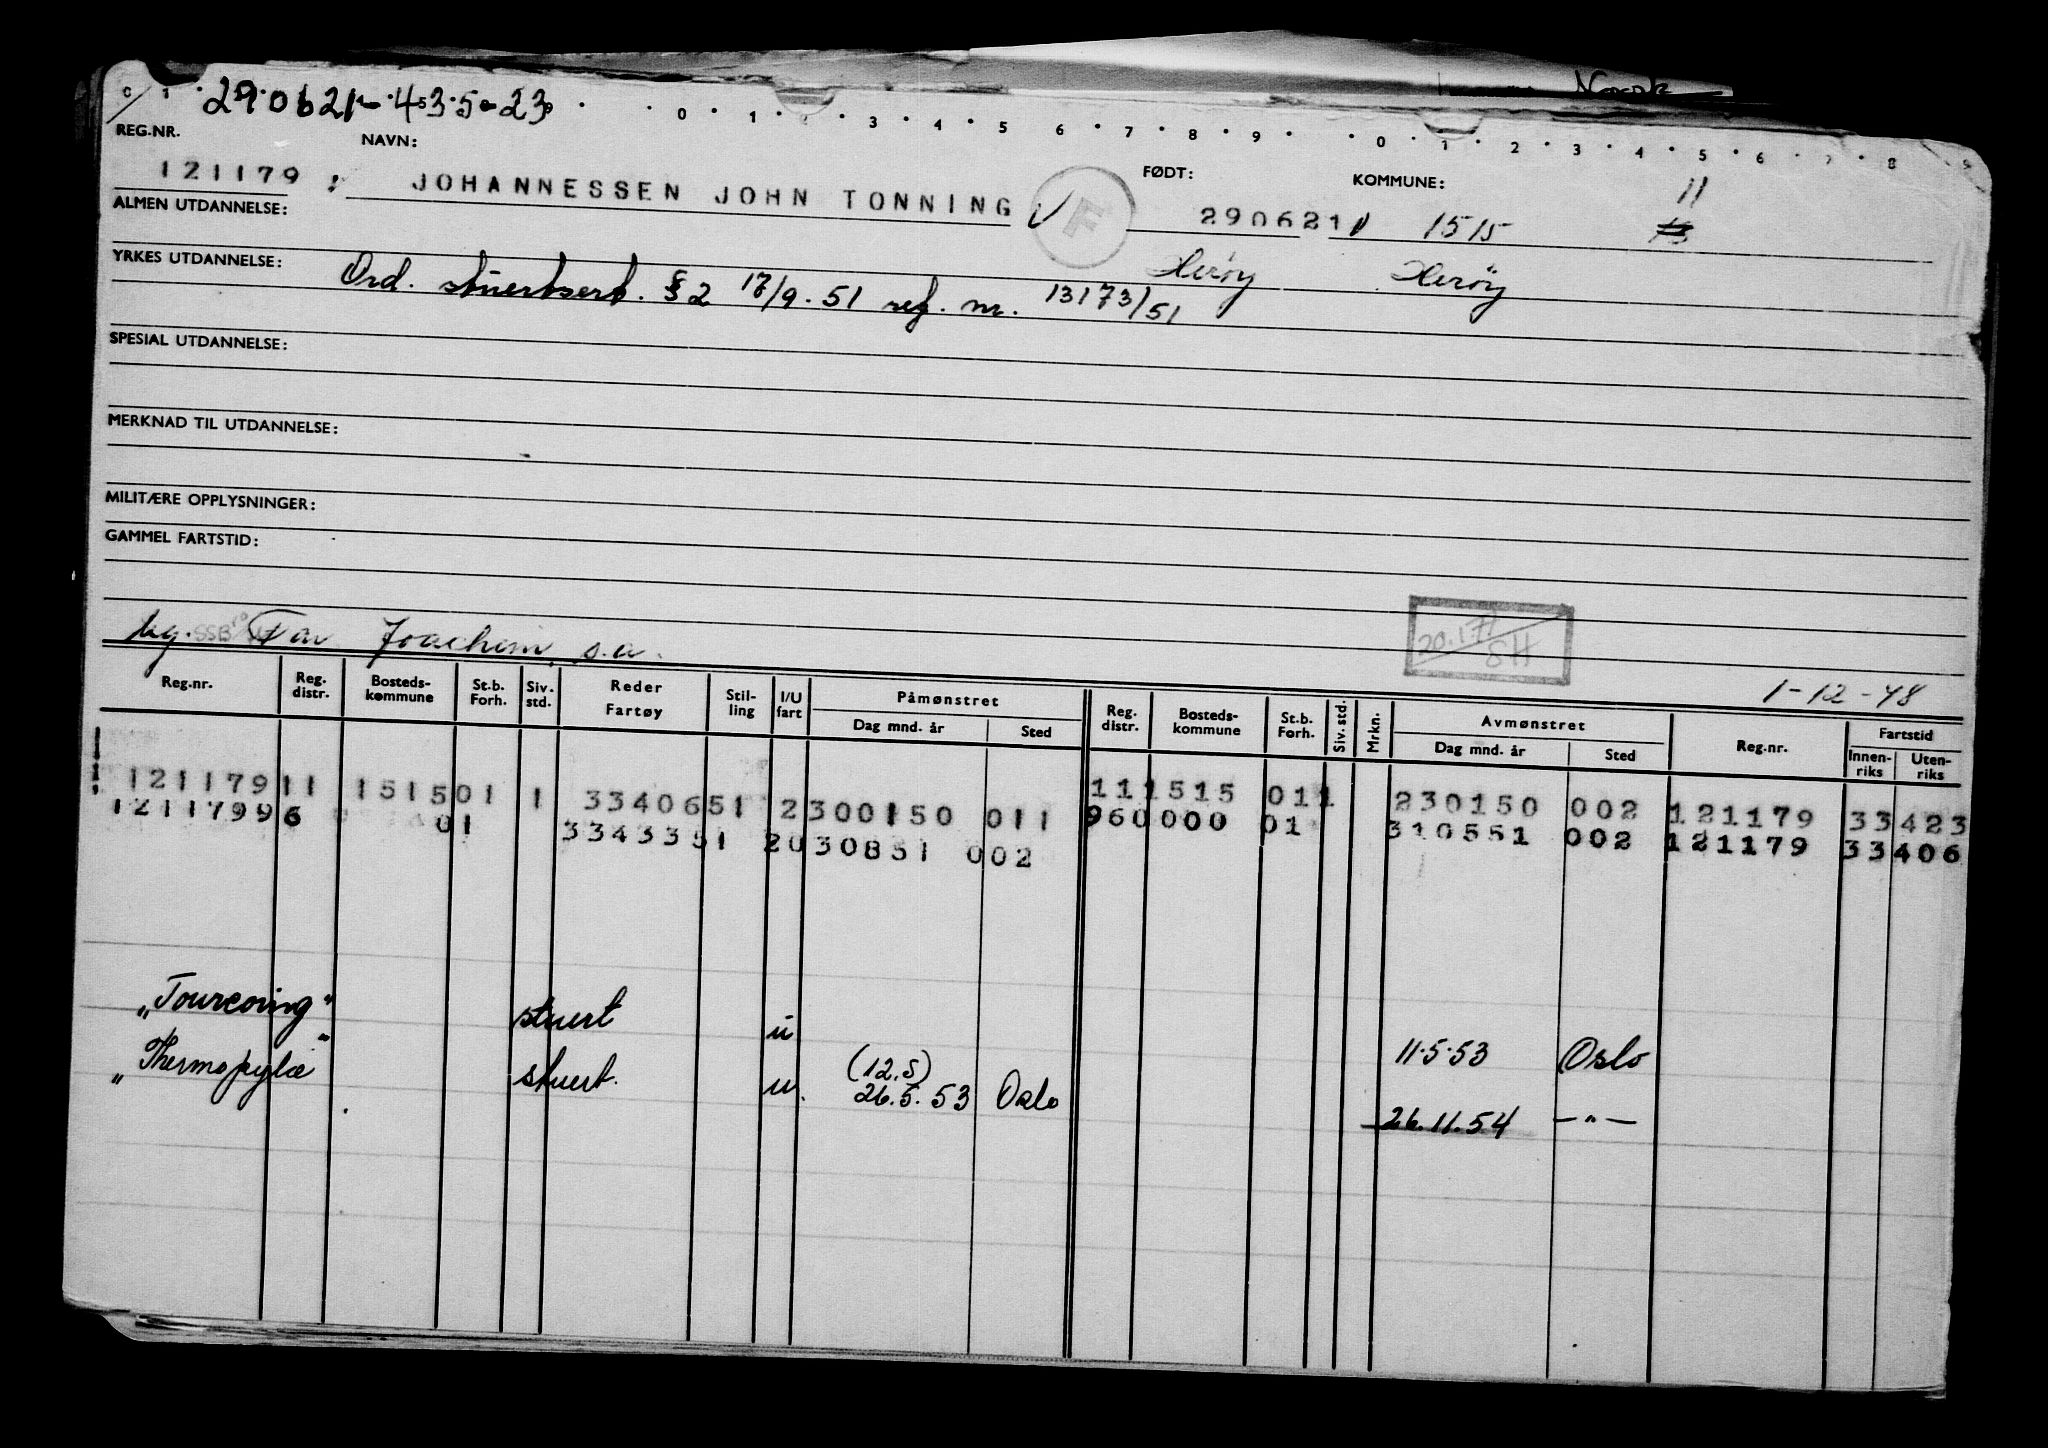 29.0621-.453.5-23
0 1 2 3 4 5 6 7 8 9 0 1 2 3 4 5 6 7 8 9
REG.NR. NAVN: FØDT: KOMMUNE: 11
121179 : JOHANNESSEN JOHN TONNING F 290621 1515
ALMEN UTDANNELSE:
Herøy Herøy
YRKES UTDANNELSE: Ord. stuertsert. § 2 17/9.51 reg. nr. 13173/51
SPESIAL UTDANNELSE:
MERKNAD TIL UTDANNELSE:
MILITÆRE OPPLYSNINGER:
GAMMEL FARTSTID:
ug. Far Joachim, s.a.
20.1.71 SH
1-12-48
Reg.nr. Reg. distr. Bosteds-kommune St.b. Forh. Siv. std. Reder Fartøy Stil-ling I/U fart Påmønstret Dag mnd. år Sted Reg. distr. Bosteds-kommune St.b. Forh. Siv. std. Mrkn. Avmønstret Dag mnd. år Sted Reg.nr. Fartstid Innen-riks Uten-riks
121179 11 1515 01 1 3340651 2 300150 011 11 1515 01 1 230150 002 121179 33423
121179 96 01 3343351 2 030851 002 96 0000 01 310551 002 121179 33406
"Tourcoing" stuert u 11.5.53 Oslo
"Thermopylæ" stuert. u. (12.5) 26.5.53 Oslo 26.11.54 —"—